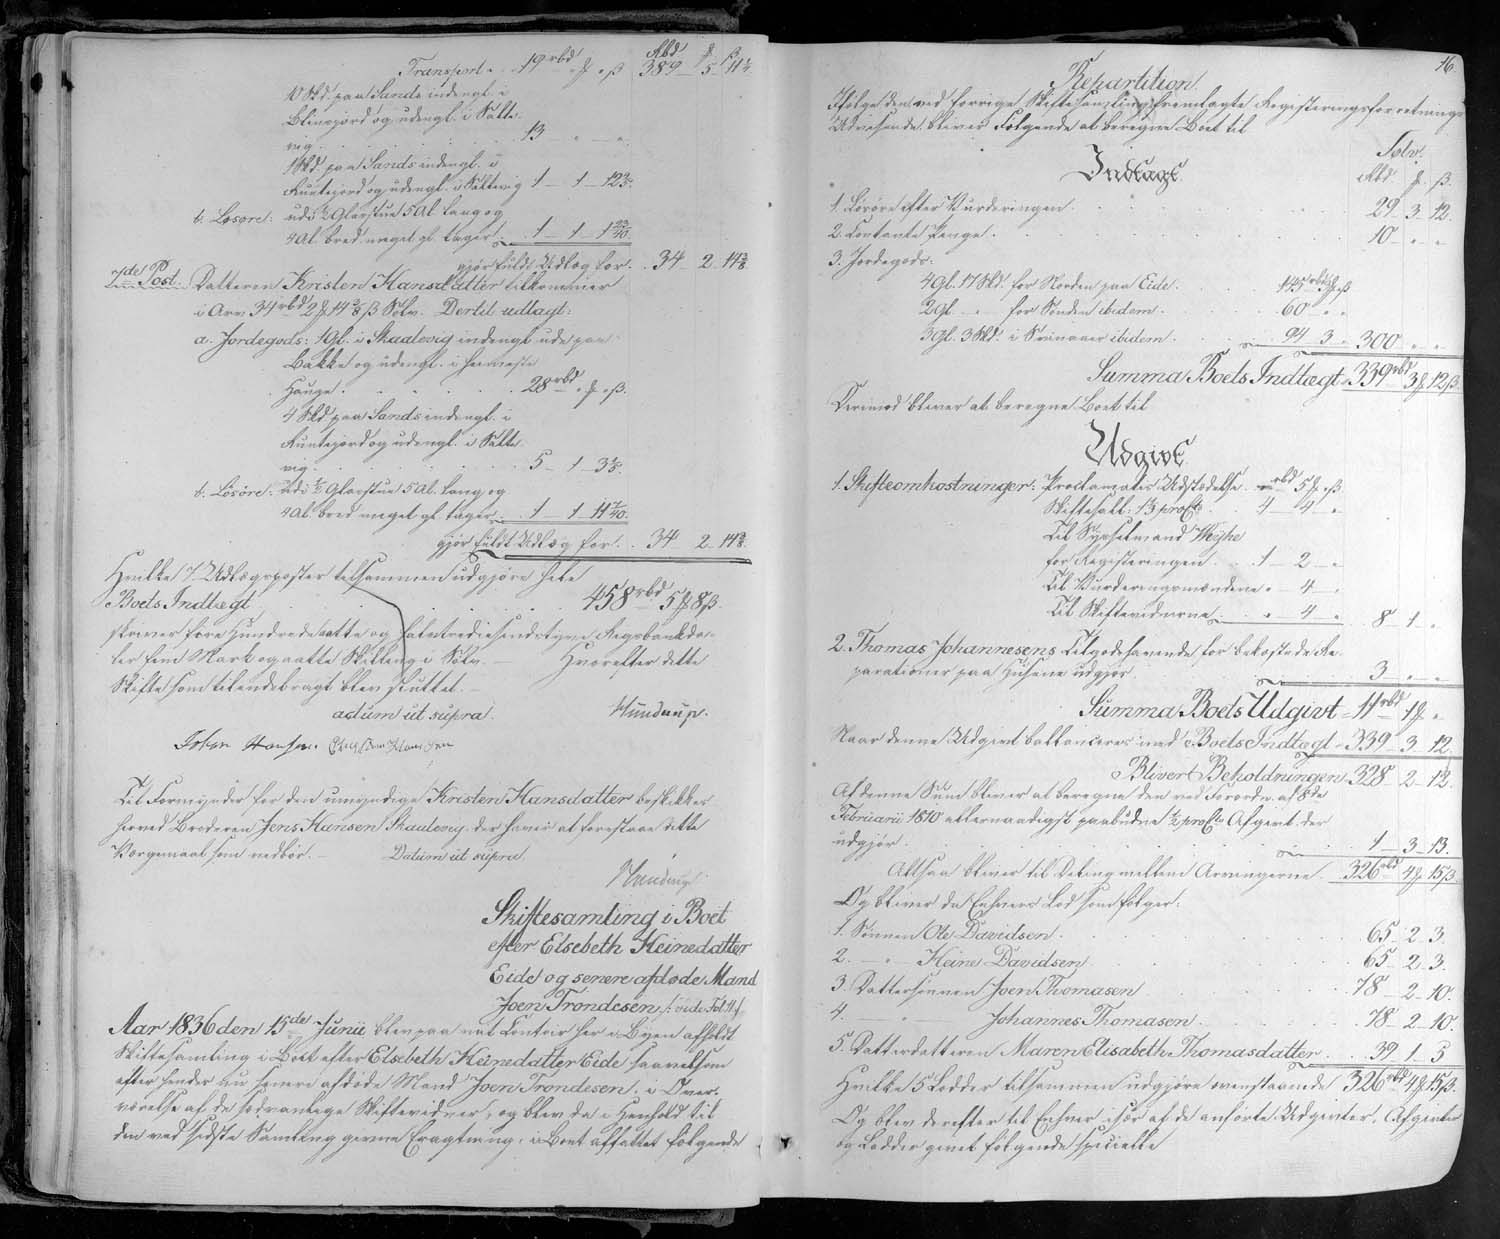 Transport . . 19 rbd „ ℔ „ ß 389 – 5 – 11¼
Rbd ℔ ß
10 Skd. paa Sands indengl. i
og udengl. i Salte
vig . . . 13 „ „
1 Skd. paa Sands indengl. i
og udengl. i Saltevig 1 – 1 – 12⅗
b. Løsøre: udi ½ Glarstue 5 Al. lang og
4 Al. bred meget gl. tager . 1 – 1 – 1 23/40
gjør fuldt Udlæg for . . 34 – 2 – 14⅜
7de Post. Datteren Kristen Hansdatter tilkommer
i Arv 34 rbd 2 ℔ 14⅜ ß Sølv. Dertil udlagt:
a. Jordegods: 1 Gl. i Skaalevig indengl. ude paa
Bakke og udengl. i
Hauge . . . . 28 rbd „ ℔ „ ß.
4 Skd. paa Sands indengl. i
og udengl. i Salte
vig . . . . 5 – 1 – 3⅕
b. Løsøre: udi ½ Glarstue 5 Al. lang og
4 Al. bred meget gl. tager . 1 – 1 – 11 7/40
gjør fuldt Udlæg for . . 34 – 2 – 14⅜.
Hvilke 7 Udlægsposter tilsammen udgjøre hele
Boets Indtægt . . . . 458 rbd 5 ℔ 8 ß.
skriver fire Hundrede otte og halvtrediesindstyve Rigsbankda-
ler fem Mark og aatte Skilling i Sølv. – Hvorefter dette
Skifte som tilendebragt blev sluttet. –
actum ut supra. Hunderup.
Johan Hansen.
Til Formynder for den umyndige Kristen Hansdatter beskikkes
herved Broderen Jens Hansen Skaalevig, der haver at forestaae dette
Værgemaal som vedbør. – Datum ut supra
Hunderup
Skiftesamling i Boet
efter Elsebeth Heinedatter
Eide og senere afdøde Mand
Joen Trondesen /: vide Fol. 11 :/
Aar 1836 den 15de Junii blev paa mit Contoir her i Byen afholdt
Skiftesamling i Boet efter Elsebeth Heinedatter Eide saavelsom
efter hendes nu senere afdøde Mand Joen Trondesen, i Over-
værelse af de sædvanlige Skiftevidner, og blev da i Henhold til
den ved sidste Samling givne Eragtning, i Boet affattet følgende
16.
Repartition
Ifølge den ved forrige Skiftesamling fremlagte Registeringsforretnings
Udvisende, bliver Følgende at beregne Boet til
Indtægt
Sølv.
Rbd. ℔ ß.
1. Løsøre efter Vurderingen . . . 29 – 3 – 12.
2. Contante Penge . . . 10 – „ – „
3. Jordegods:
4 Gl. 17 Skd. for Norden paa Eide . . . 145 rbd 3 ℔ „ ß
2 Gl. „ – for Sønden ibidem . . . 60 „ „
3 Gl. 3 Skd. i ibidem . . . 94 – 3 „ 300 „ „
Summa Boets Indtægt = 339 rbd 3 ℔ 12 ß.
Derimod bliver at beregne Boet til
Udgivt
1. Skifteomkostninger: Proclamatis Udstædelse . „ rbd 5 ℔ „ ß
Skiftesalt: 1⅓ proCto . . 4 – 4 „
Til Sysselmand Weyhe
for Registeringen . . . 1 – 2 – „
Til Vurderingsmændene „ 4 – „
Til Skiftevidnerne „ 4 – „ 8 – 1 – „
2. Thomas Johannesens Tilgodehavende for bekostede Re-
parationer paa Husene udgjør . . . 3 „ „
Summa Boets Udgivt = 11 rbd 1 ℔ „
Naar denne Udgivt ballanceres med Boets Indtægt – 339 – 3 – 12.
Bliver Beholdningen – 328 – 2 – 12.
Af denne Sum bliver at beregne den ved Forordn. af 8de
Februarii 1810 allernaadigst paabudne ½ proCto Afgivt der
udgjør . . . 1 – 3 – 13.
Altsaa bliver til Deling mellem Arvingerne . 326 rbd 4 ℔ 15 ß
Og bliver da Enhvers Lod som følger:
1. Sønnen Ole Davidsen . . . 65 – 2 – 3.
2. – „ – Heine Davidsen . . . 65 – 2 – 3.
3. Dattersønnen Joen Thomasen . . . 78 – 2 – 10.
4. – „ – Johannes Thomasen . . . 78 – 2 – 10.
5. Datterdatteren Maren Elisabeth Thomasdatter . . 39 – 1 – 5
Hvilke 5 Lodder tilsammen udgjøre ovenstaaende 326 rbd 4 ℔ 15 ß.
Og blev derefter til Enhver især af de anførte Udgivter, Afgivter
og Lodder givet følgende specielle